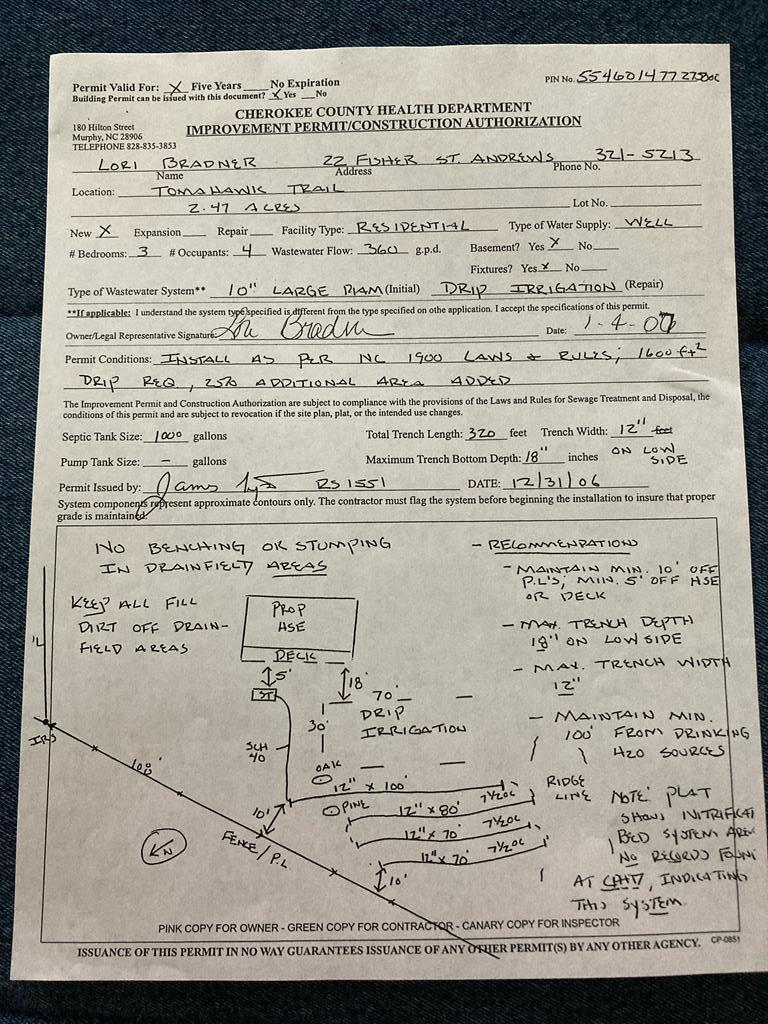 Permit Valid For: X Five Years ___ No Expiration
Building Permit can be issued with this document? X Yes __No
PIN No. 554601477275000
CHEROKEE COUNTY HEALTH DEPARTMENT
IMPROVEMENT PERMIT/CONSTRUCTION AUTHORIZATION
180 Hilton Street
Murphy, NC 28906
TELEPHONE 828-835-3853
LORI BRADNER 22 FISHER ST. ANDREWS 321-5213
Name Address Phone No.
Location: TOMAHAWK TRAIL
2.47 ACRES Lot No.
New X Expansion ___ Repair ___ Facility Type: RESIDENTIAL Type of Water Supply: WELL
# Bedrooms: 3 # Occupants: 4 Wastewater Flow: 360 g.p.d. Basement? Yes X No ___
Fixtures? Yes X No ___
Type of Wastewater System** 10" LARGE DIAM (Initial) DRIP IRRIGATION (Repair)
**If applicable: I understand the system type specified is different from the type specified on othe application. I accept the specifications of this permit.
Owner/Legal Representative Signature: Lori Bradner Date: 1-4-07
Permit Conditions: INSTALL AS PER NC 1900 LAWS & RULES; 1600 ft²
DRIP REQ, 25% ADDITIONAL AREA ADDED
The Improvement Permit and Construction Authorization are subject to compliance with the provisions of the Laws and Rules for Sewage Treatment and Disposal, the
conditions of this permit and are subject to revocation if the site plan, plat, or the intended use changes.
Septic Tank Size: 1000 gallons Total Trench Length: 320 feet Trench Width: 12" feet
Pump Tank Size: - gallons Maximum Trench Bottom Depth: 18" inches ON LOW SIDE
Permit Issued by: James RS 1551 DATE: 12/31/06
System components represent approximate contours only. The contractor must flag the system before beginning the installation to insure that proper
grade is maintained.
NO BENCHING OR STUMPING
IN DRAINFIELD AREAS
KEEP ALL FILL
DIRT OFF DRAIN-
FIELD AREAS
PROP
HSE
DECK
5'
18'
ST
70'
DRIP
IRRIGATION
30'
SCH
40
OAK
PINE
P/L
IRS
100'
10'
12" x 100'
7½ OC
12" x 80'
7½ OC
12" x 70'
7½ OC
12" x 70'
10'
RIDGE
LINE
FENCE/P.L.
N
- RECOMMENDATIONS
- MAINTAIN MIN. 10' OFF
P.L'S, MIN. 5' OFF HSE
OR DECK
- MAX. TRENCH DEPTH
18" ON LOW SIDE
- MAX. TRENCH WIDTH
12"
- MAINTAIN MIN.
100' FROM DRINKING
H2O SOURCES
NOTE: PLAT
SHOWS NITRIFICATI
BED SYSTEM AREA
NO RECORDS FOUND
AT CCHD, INDICATING
THIS SYSTEM.
PINK COPY FOR OWNER - GREEN COPY FOR CONTRACTOR - CANARY COPY FOR INSPECTOR
ISSUANCE OF THIS PERMIT IN NO WAY GUARANTEES ISSUANCE OF ANY OTHER PERMIT(S) BY ANY OTHER AGENCY. CP-0851